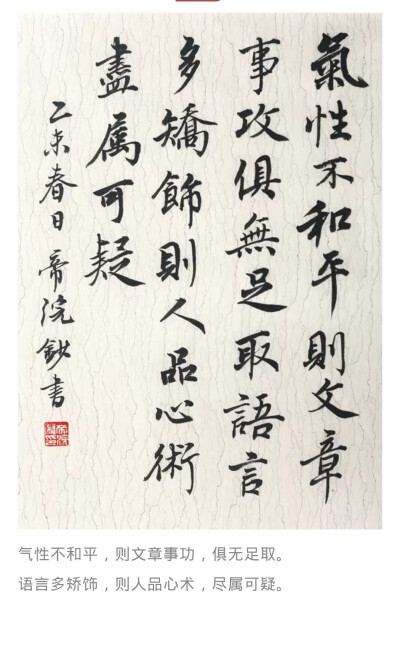 氣性不和平則文章
事攻俱無足取語言
多矯飾則人品心術
盡属可疑
乙未春日帝浣鈔書
气性不和平，则文章事功，俱无足取。
语言多矫饰，则人品心术，尽属可疑。